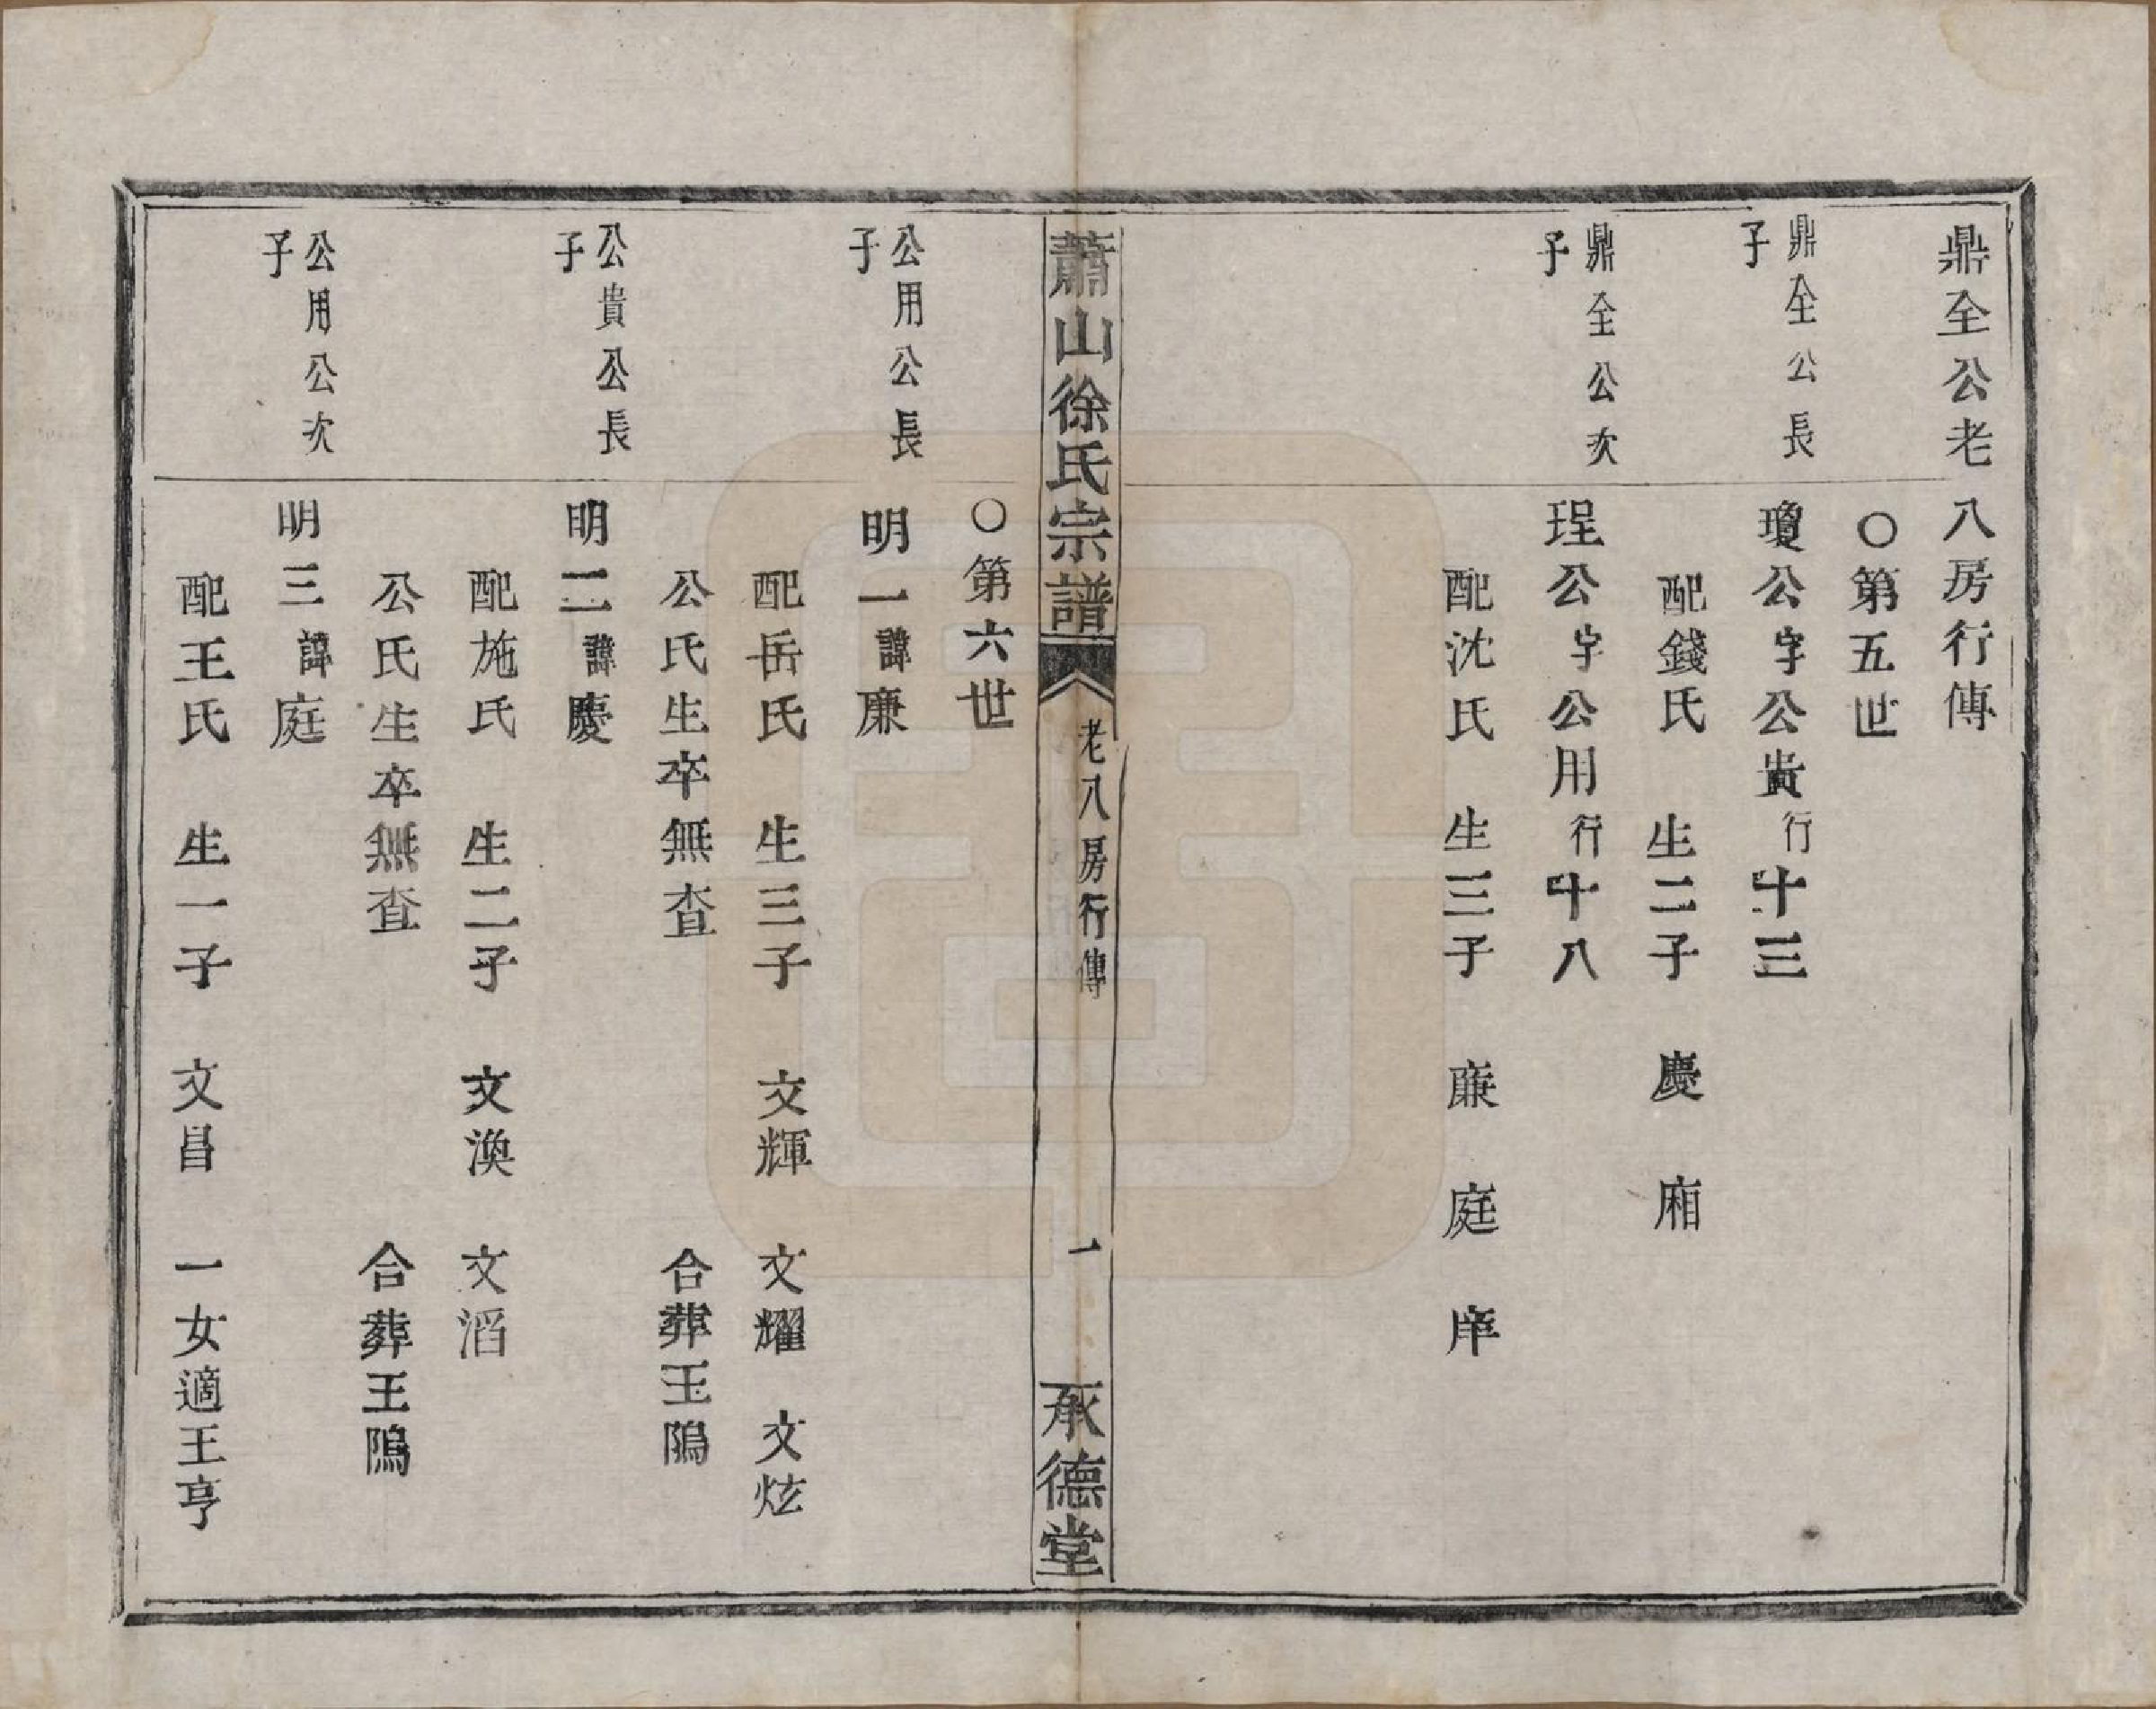 鼎全公老八房行傳
○第五世
鼎全公長子
瓊公字公貴行十三
配錢氏 生二子 慶 廂
鼎全公次子
珵公字公用行十八
配沈氏 生三子 廉 庭 庠
蕭山徐氏宗譜 老八房行傳 一 承德堂
○第六世
公用公長子
明一諱廉
配岳氏 生三子 文輝 文耀 文炫
公氏生卒無查 合葬王隖
公貴公長子
明二諱慶
配施氏 生二子 文渙 文滔
公氏生卒無查 合葬王隖
公用公次子
明三諱庭
配王氏 生一子 文昌 一女適王亨